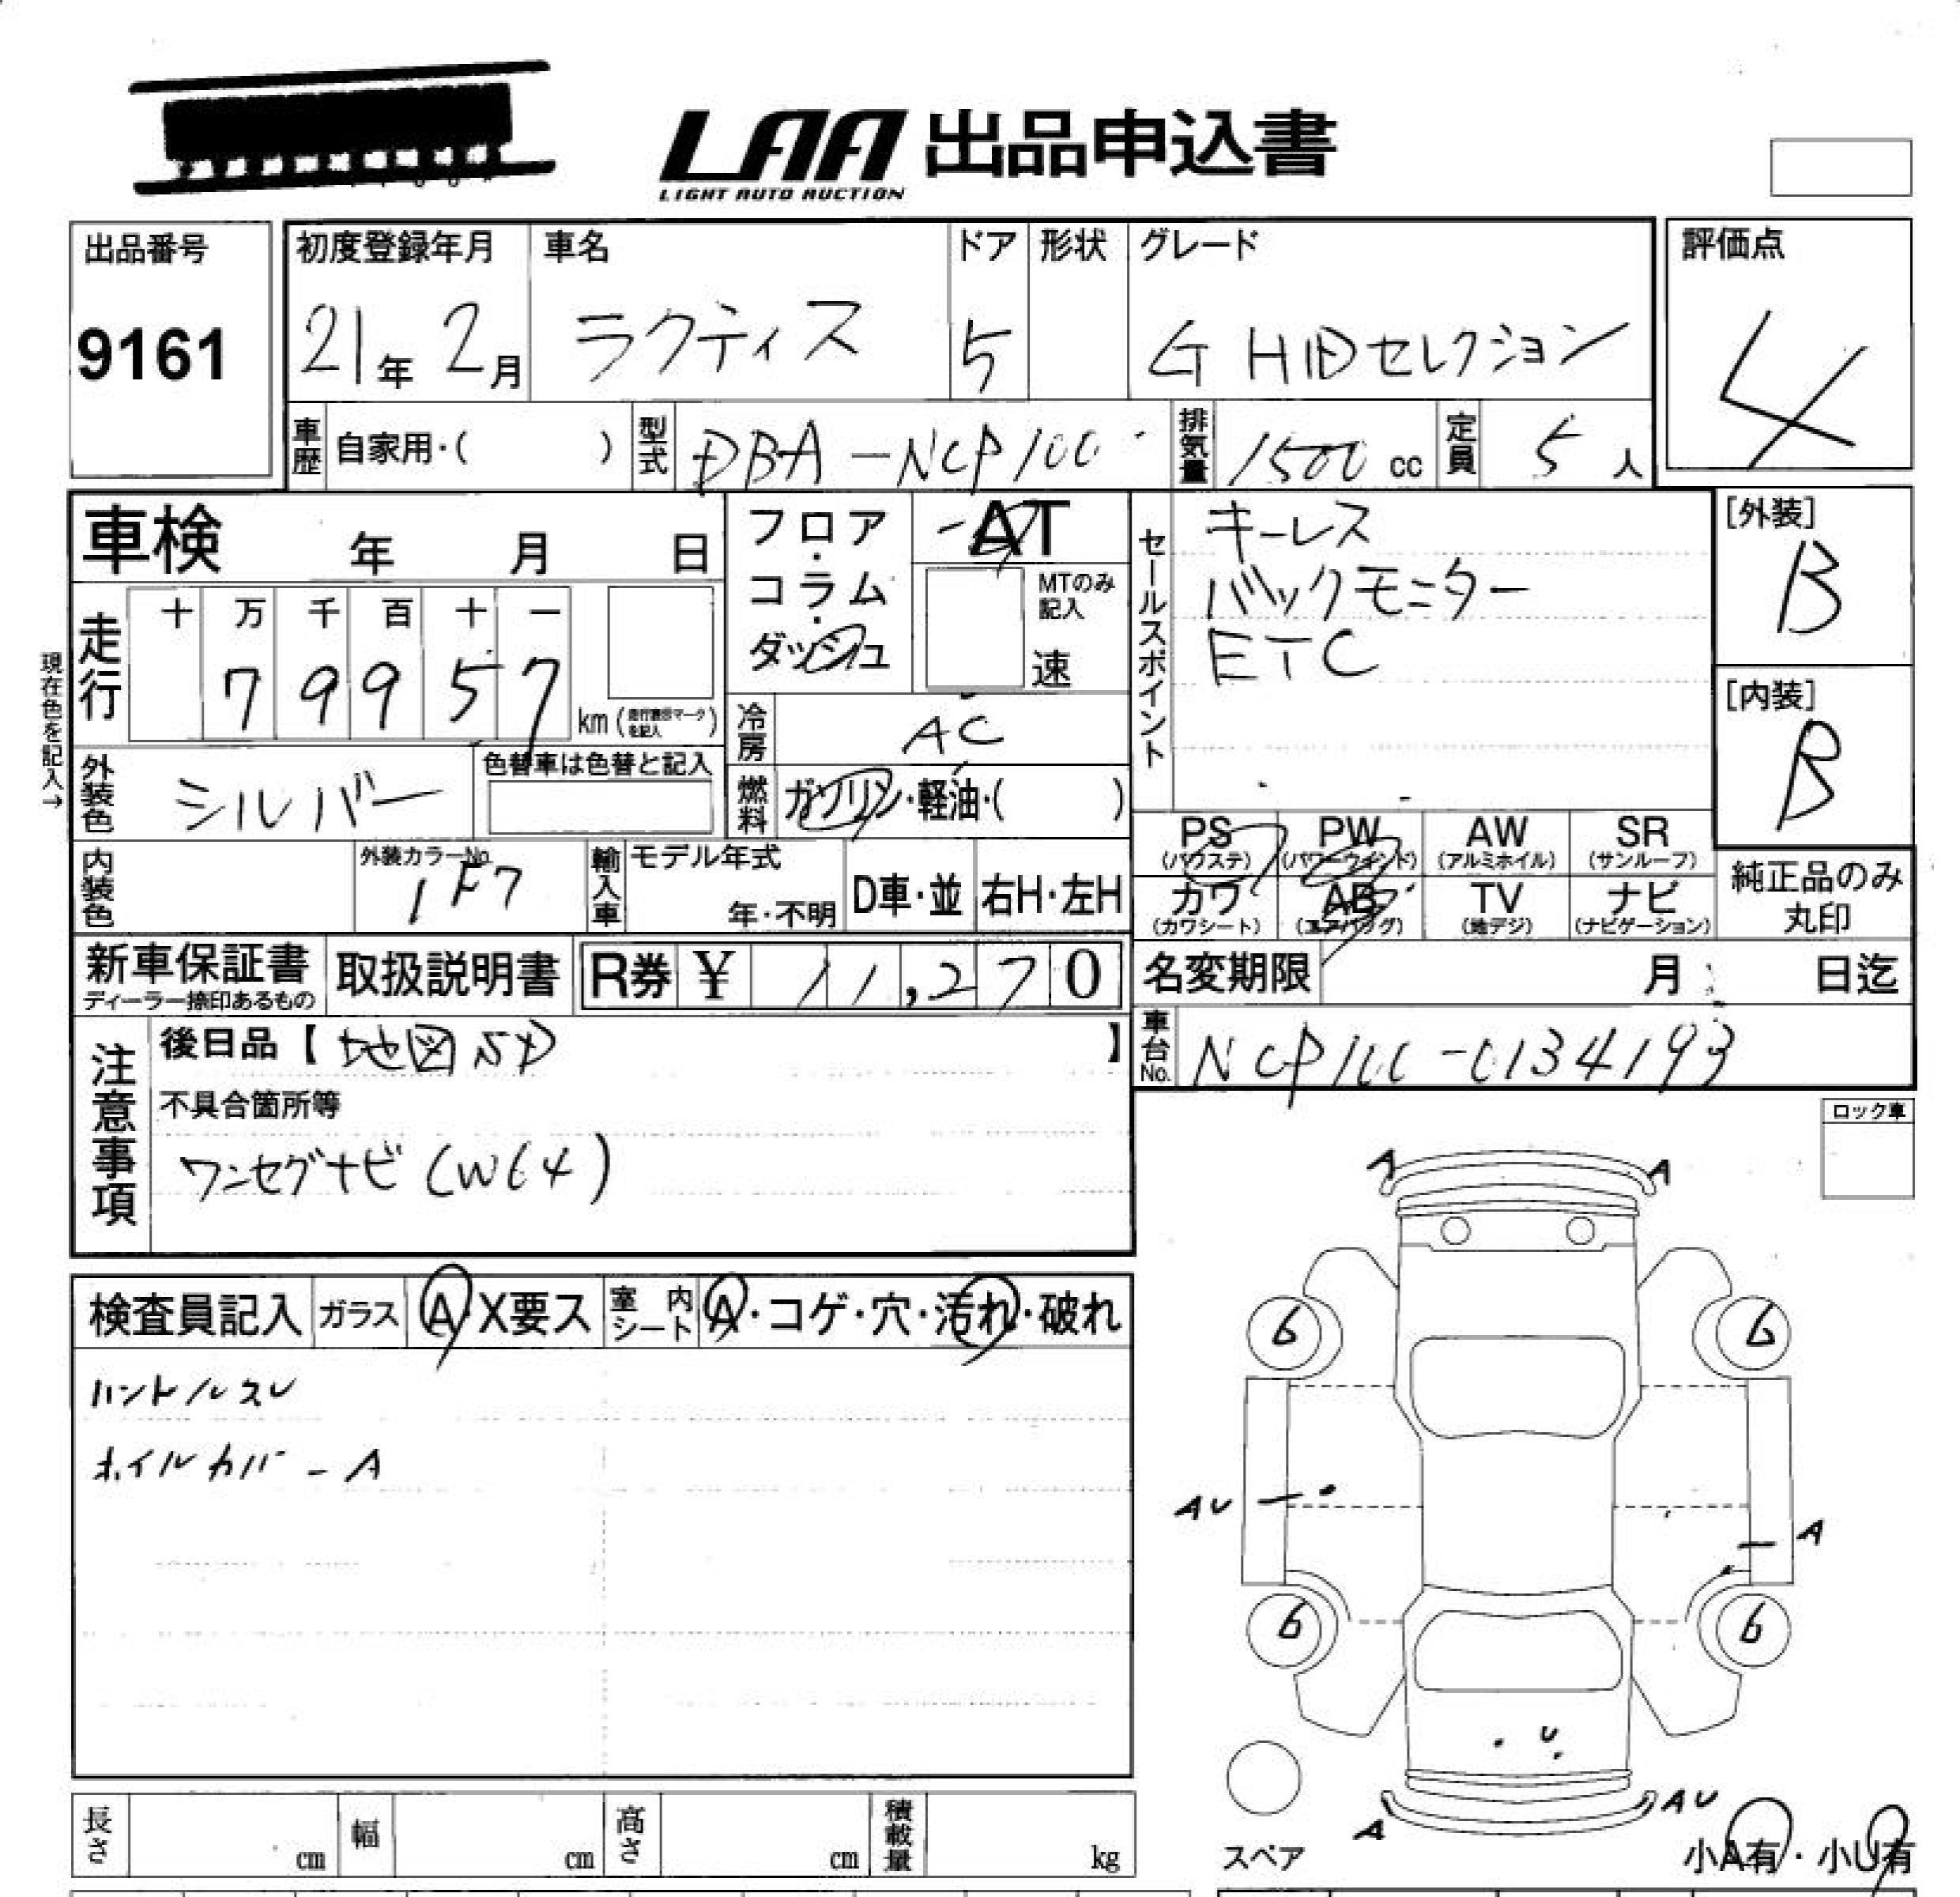 LAA 出品申込書
LIGHT AUTO AUCTION
出品番号
9161
初度登録年月
21年 2月
車名
ラクティス
ドア
5
形状
グレード
G HIDセレクション
評価点
4
車歴
自家用・( )
型式
DBA-NCP100
排気量
1500 cc
定員
5 人
車検 年 月 日
フロア・コラム・ダッシュ
AT
MTのみ記入
速
セールスポイント
キーレス
バックモニター
ETC
[外装]
B
[内装]
B
現在色を記入→
走行
十 万 千 百 十 一
7 9 9 5 7
km (走行表示マークを記入)
冷房
AC
外装色
シルバー
色替車は色替と記入
燃料
ガソリン・軽油・( )
PS
(パワステ)
PW
(パワーウインド)
AW
(アルミホイル)
SR
(サンルーフ)
カワ
(カワシート)
AB
(エアバッグ)
TV
(地デジ)
ナビ
(ナビゲーション)
純正品のみ
丸印
内装色
外装カラーNo.
1F7
輸入車
モデル年式
年・不明
D車・並
右H・左H
新車保証書
ディーラー捺印あるもの
取扱説明書
R券 ¥ 11,270
名変期限 月 日迄
車台No.
NCP100-0134193
注意事項
後日品【 地図SD 】
不具合箇所等
ワンセグナビ(W64)
ロック車
検査員記入
ガラス
A・X要ス
室内シート
A・コゲ・穴・汚れ・破れ
ハンドルスレ
ホイルカバーA
A
A
6
6
AU
A
6
6
U
AU
A
スペア
小A有・小U有
長さ cm
幅 cm
高さ cm
積載量 kg